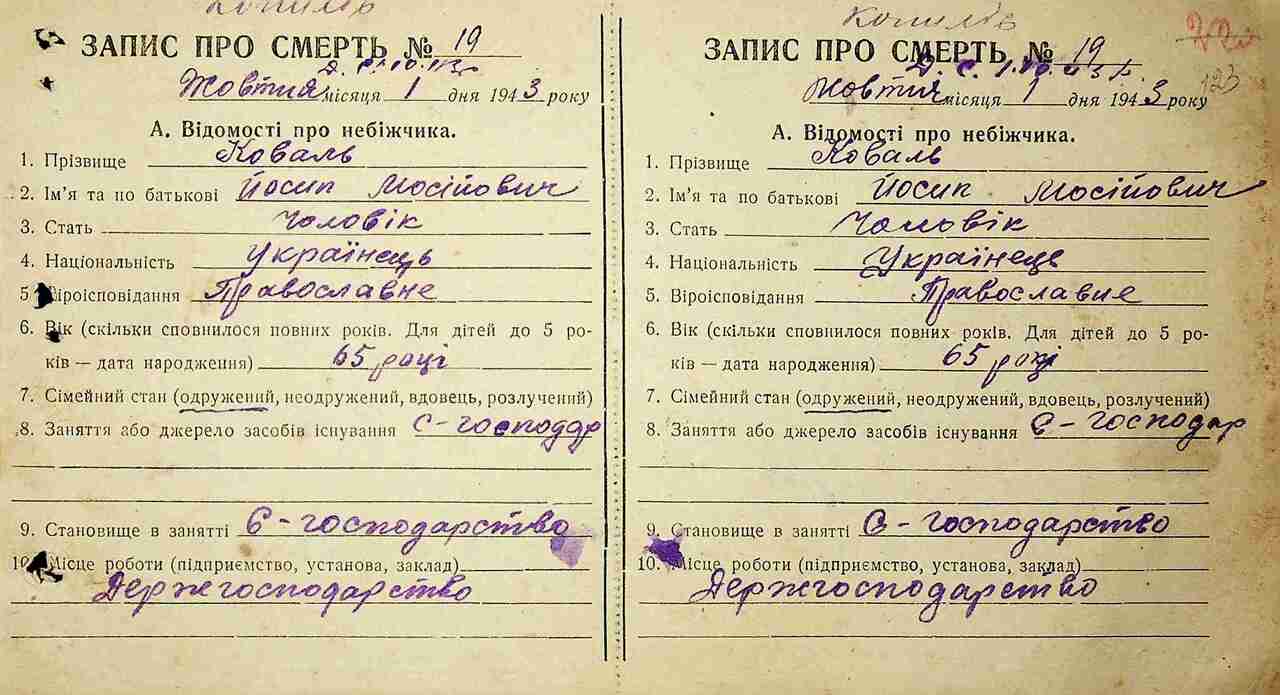 ЗАПИС ПРО СМЕРТЬ № 19
Жовтня місяця 1 дня 1943 року
А. Відомості про небіжчика.
1. Прізвище Коваль
2. Ім'я та по батькові Йосип Мосійович
3. Стать Чоловік
4. Національність Українець
5 Віроісповідання Православне
6. Вік (скільки сповнилося повних років. Для дітей до 5 ро-
ків — дата народження) 65 році
7. Сімейний стан (одружений, неодружений, вдовець, розлучений)
8. Заняття або джерело засобів існування С-господар
9. Становище в занятті С-господарство
10. Місце роботи (підприємство, установа, заклад)
Держгосподарство
Копилів
ЗАПИС ПРО СМЕРТЬ № 19
Жовтня місяця 1 дня 1943 року
123
А. Відомості про небіжчика.
1. Прізвище Коваль
2. Ім'я та по батькові Йосип Мосійович
3. Стать Чоловік
4. Національність Українець
5. Віроісповідання Православне
6. Вік (скільки сповнилося повних років. Для дітей до 5 ро-
ків — дата народження) 65 році
7. Сімейний стан (одружений, неодружений, вдовець, розлучений)
8. Заняття або джерело засобів існування С-господар
9. Становище в занятті С-господарство
10. Місце роботи (підприємство, установа, заклад)
Держгосподарство